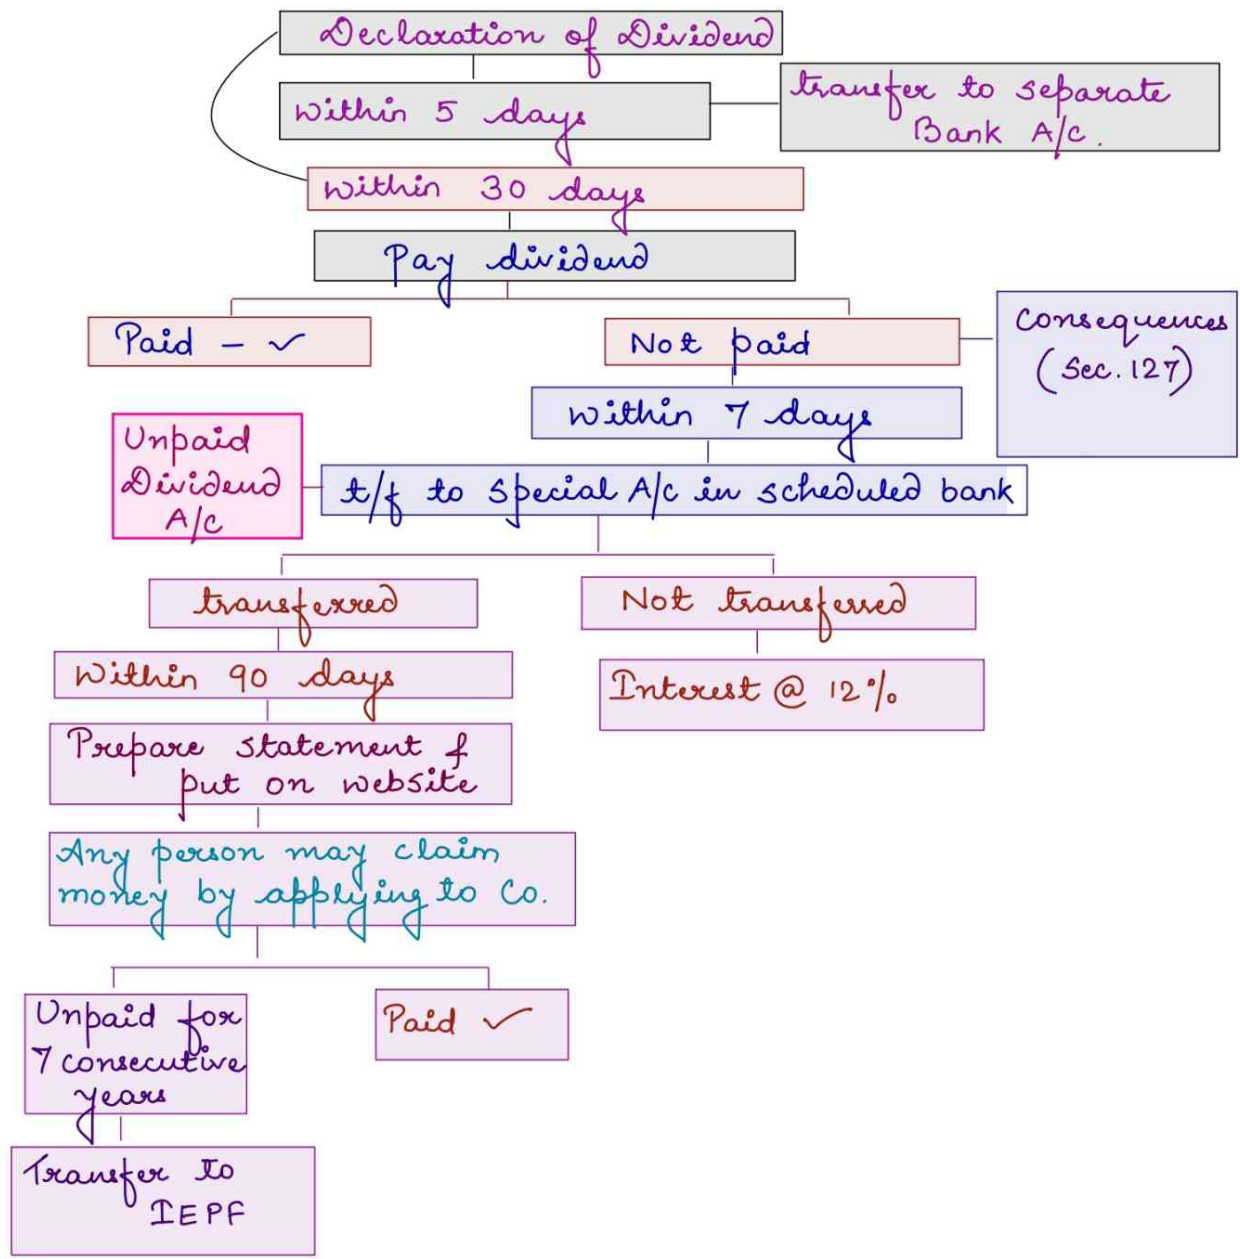 Declaration of Dividend
within 5 days
transfer to separate
Bank A/c.
within 30 days
Pay dividend
Paid - ✓
Not paid
Consequences
(Sec. 127)
within 7 days
Unpaid
Dividend
A/c
t/f to special A/c in scheduled bank
transferred
Not transferred
Within 90 days
Interest @ 12%
Prepare statement &
put on website
Any person may claim
money by applying to Co.
Unpaid for
7 consecutive
years
Paid ✓
Transfer to
IEPF